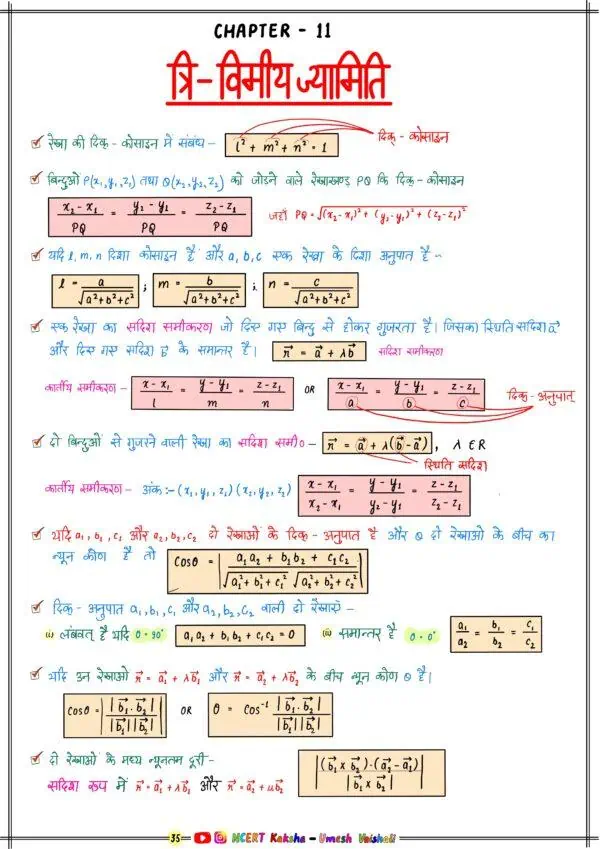 CHAPTER - 11
त्रि-विमीय ज्यामिति
रेखा की दिक् - कोसाइन में संबंध - l² + m² + n² = 1 दिक् - कोसाइन
बिन्दुओं P(x₁,y₁,z₁) तथा Q(x₂,y₂,z₂) को जोडने वाले रेखाखण्ड PQ कि दिक् - कोसाइन
(x₂ - x₁)/PQ = (y₂ - y₁)/PQ = (z₂ - z₁)/PQ जहाँ PQ = √((x₂ - x₁)² + (y₂ - y₁)² + (z₂ - z₁)²)
यदि l, m, n दिशा कोसाइन हैं और a, b, c एक रेखा के दिशा अनुपात है -
l = a/√(a²+b²+c²) ; m = b/√(a²+b²+c²) ; n = c/√(a²+b²+c²)
एक रेखा का सदिश समीकरण जो दिए गए बिन्दु से होकर गुजरता है। जिसका स्थिति सदिश a⃗
और दिए गए सदिश b⃗ के समान्तर है। r⃗ = a⃗ + λb⃗ सदिश समीकरण
कार्तीय समीकरण - (x - x₁)/l = (y - y₁)/m = (z - z₁)/n OR (x - x₁)/a = (y - y₁)/b = (z - z₁)/c दिक् - अनुपात्
दो बिन्दुओं से गुजरने वाली रेखा का सदिश समी० - r⃗ = a⃗ + λ(b⃗ - a⃗), λ ∈ R
स्थिति सदिश
कार्तीय समीकरण - अंक :- (x₁, y₁, z₁) (x₂, y₂, z₂) (x - x₁)/(x₂ - x₁) = (y - y₁)/(y₂ - y₁) = (z - z₁)/(z₂ - z₁)
यदि a₁, b₁, c₁ और a₂, b₂, c₂ दो रेखाओं के दिक् - अनुपात है और θ दो रेखाओं के बीच का
न्यून कोण है तो Cosθ = |(a₁a₂ + b₁b₂ + c₁c₂)/(√(a₁² + b₁² + c₁²) √(a₂² + b₂² + c₂²))|
दिक् - अनुपात a₁, b₁, c₁ और a₂, b₂, c₂ वाली दो रेखाएँ -
(i) लंबवत् है यदि θ = 90° a₁a₂ + b₁b₂ + c₁c₂ = 0 (ii) समान्तर है θ = 0° a₁/a₂ = b₁/b₂ = c₁/c₂
यदि उन रेखाओं r⃗ = a⃗₁ + λb⃗₁ और r⃗ = a⃗₂ + λb⃗₂ के बीच न्यून कोण θ है।
Cosθ = | |b⃗₁ . b⃗₂| / |b⃗₁||b⃗₂| | OR θ = Cos⁻¹ | |b⃗₁ . b⃗₂| / |b⃗₁||b⃗₂| |
दो रेखाओं के मध्य न्यूनतम दूरी -
सदिश रूप में r⃗ = a⃗₁ + λb⃗₁ और r⃗ = a⃗₂ + μb⃗₂ |(b⃗₁ x b⃗₂).(a⃗₂ - a⃗₁) / |b⃗₁ x b⃗₂||
35 NCERT Kaksha - Umesh Vaishali